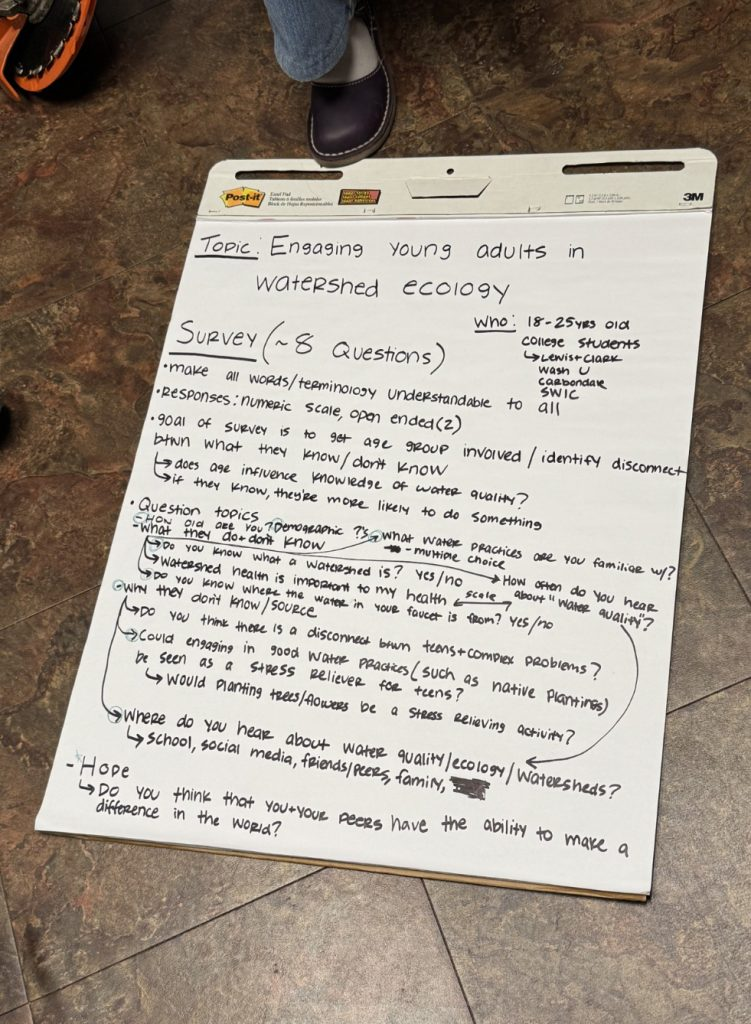 Post-it
Easel Pad
3M
Topic: Engaging young adults in
watershed ecology
Who: 18-25yrs old
college students
↳ Lewis+Clark
Wash U
Carbondale
SWIC
Survey (~8 Questions)
• make all words/terminology understandable to all
• Responses: numeric scale, open ended (2)
• goal of survey is to get age group involved / identify disconnect
btwn what they know/don't know
↳ does age influence knowledge of water quality?
↳ if they know, they're more likely to do something
• Question topics
- How old are you? Demographic ?'s
- What they do+don't know
→ What water practices are you familiar w/?
- multiple choice
↳ Do you know what a watershed is? yes/no
↳ Watershed health is important to my health ← scale
↳ Do you know where the water in your faucet is from? yes/no
→ How often do you hear
about "water quality"?
- Why they don't know/source
↳ Do you think there is a disconnect btwn teens+complex problems?
↳ Could engaging in good water practices (such as native plantings)
be seen as a stress reliever for teens?
↳ Would planting trees/flowers be a stress relieving activity?
↳ Where do you hear about water quality/ecology/watersheds?
↳ School, social media, friends/peers, family,
- Hope
↳ Do you think that you+your peers have the ability to make a
difference in the world?